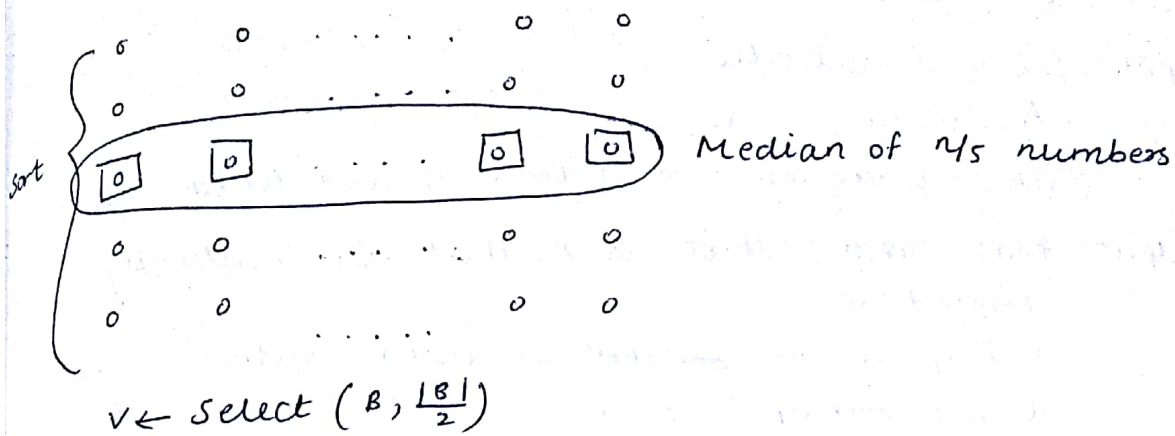 sort
Median of n/5 numbers
V ← Select (B, |B|/2)